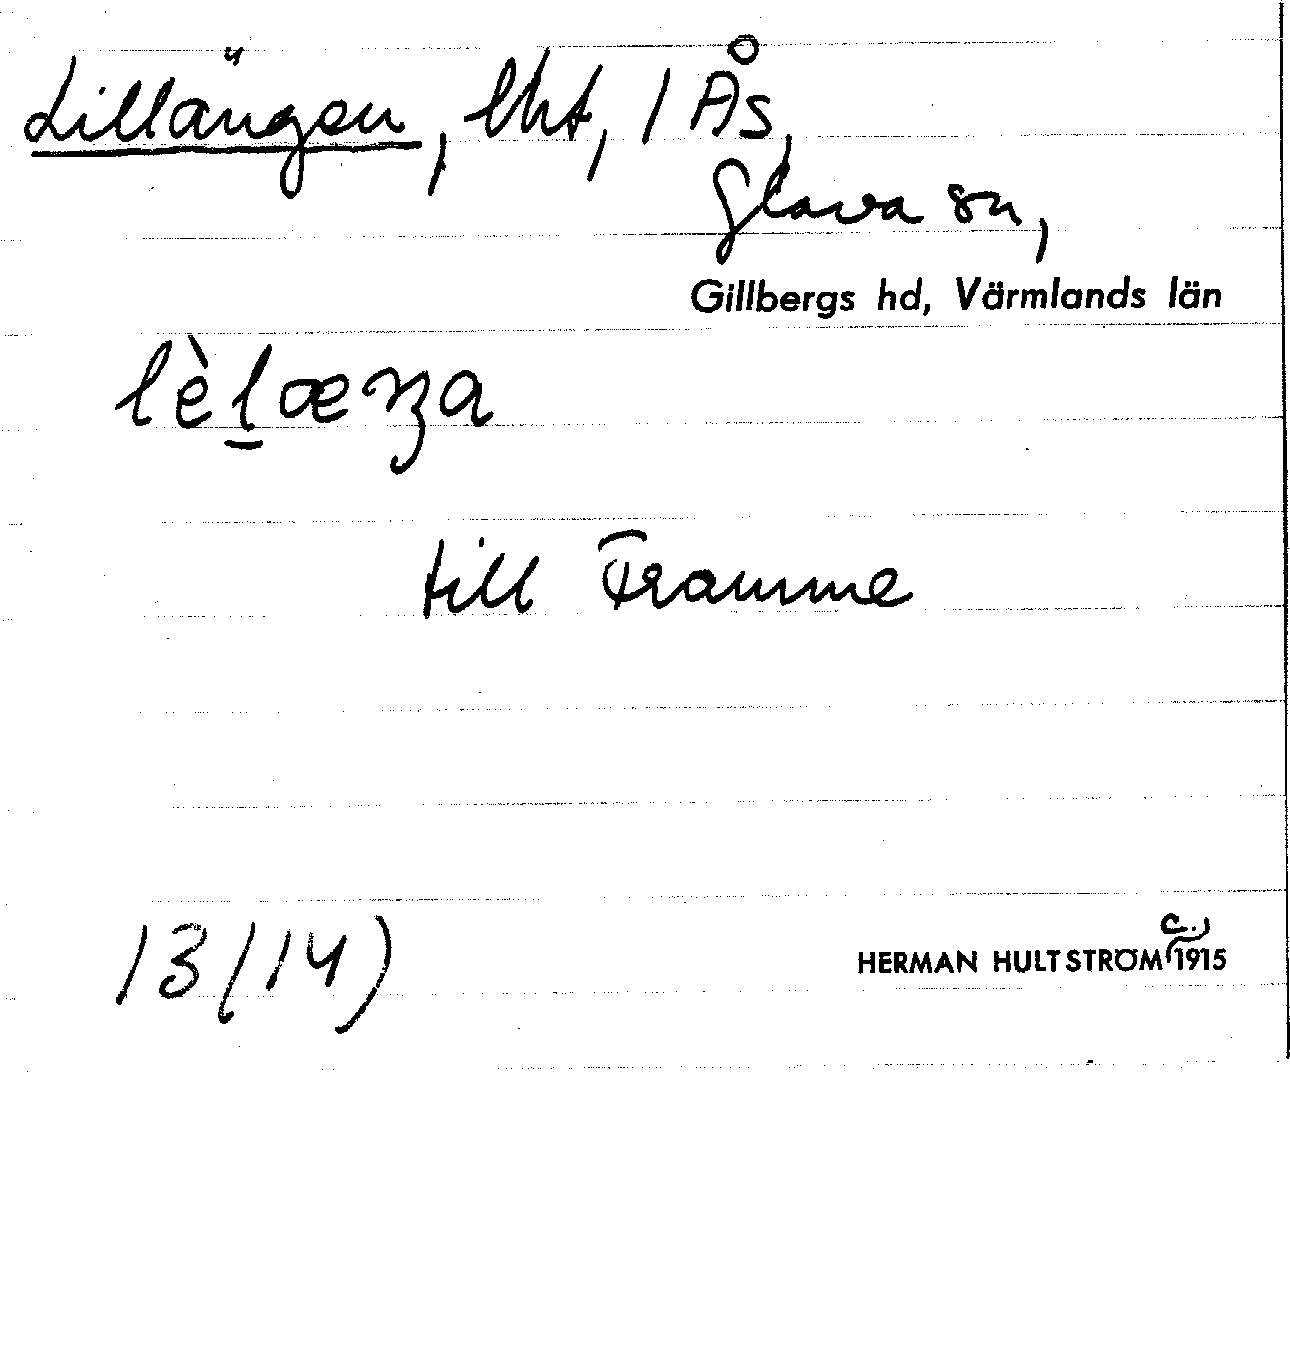 Lillängen, lht, 1 Ås,
Glava sn,
Gillbergs hd, Värmlands län
lèl̲æŋa
till Framme
13(14)
HERMAN HULTSTRÖM c.) 1915